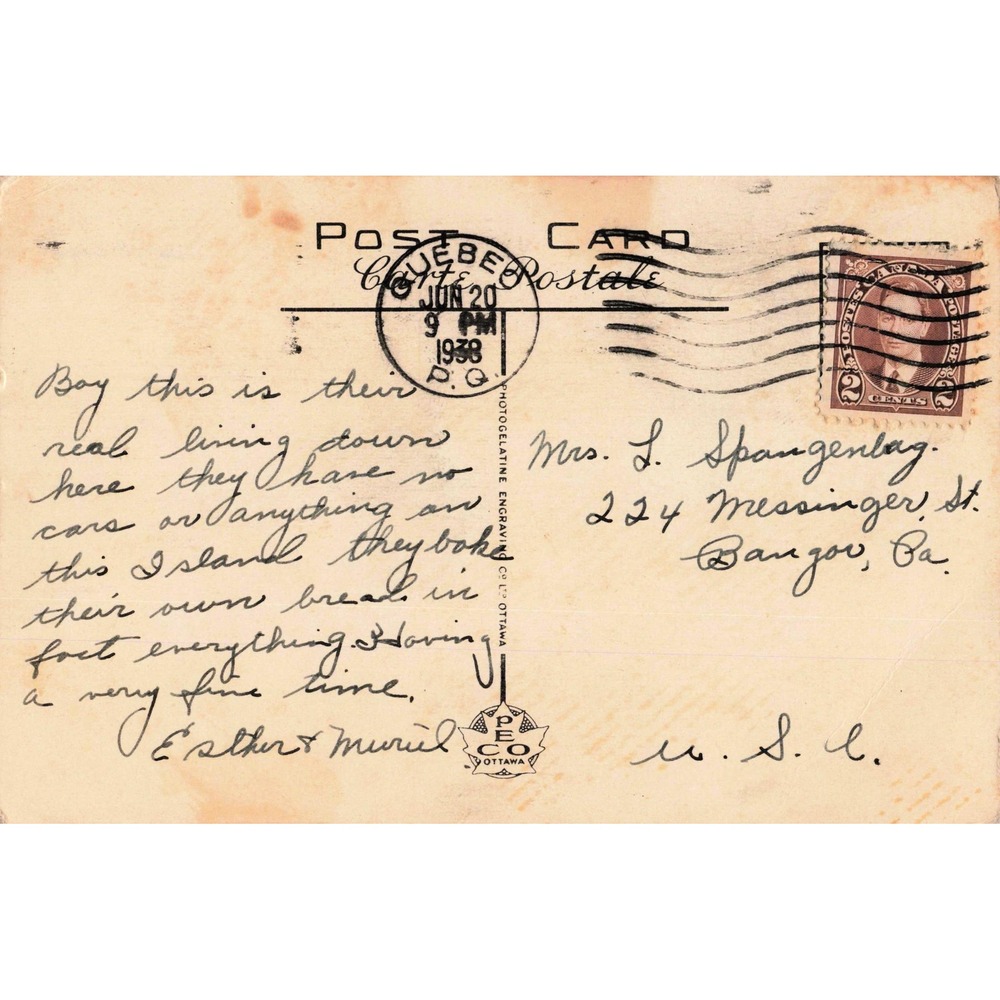 POST CARD
Carte Postale
QUEBEC
JUN 20
9 PM
1938
P.Q.
POSTES CANADA POSTAGE
2 CENTS 2
Boy this is their
real living down
here they have no
cars or anything on
this Island they bake
their own bread in
fact everything. Having
a very fine time.
Esther & Muriel
PHOTOGELATINE ENGRAVING CO. LTD. OTTAWA
PECO
OTTAWA
Mrs. L. Spangenbag.
224 Messinger St.
Bangor, Pa.
U. S. A.